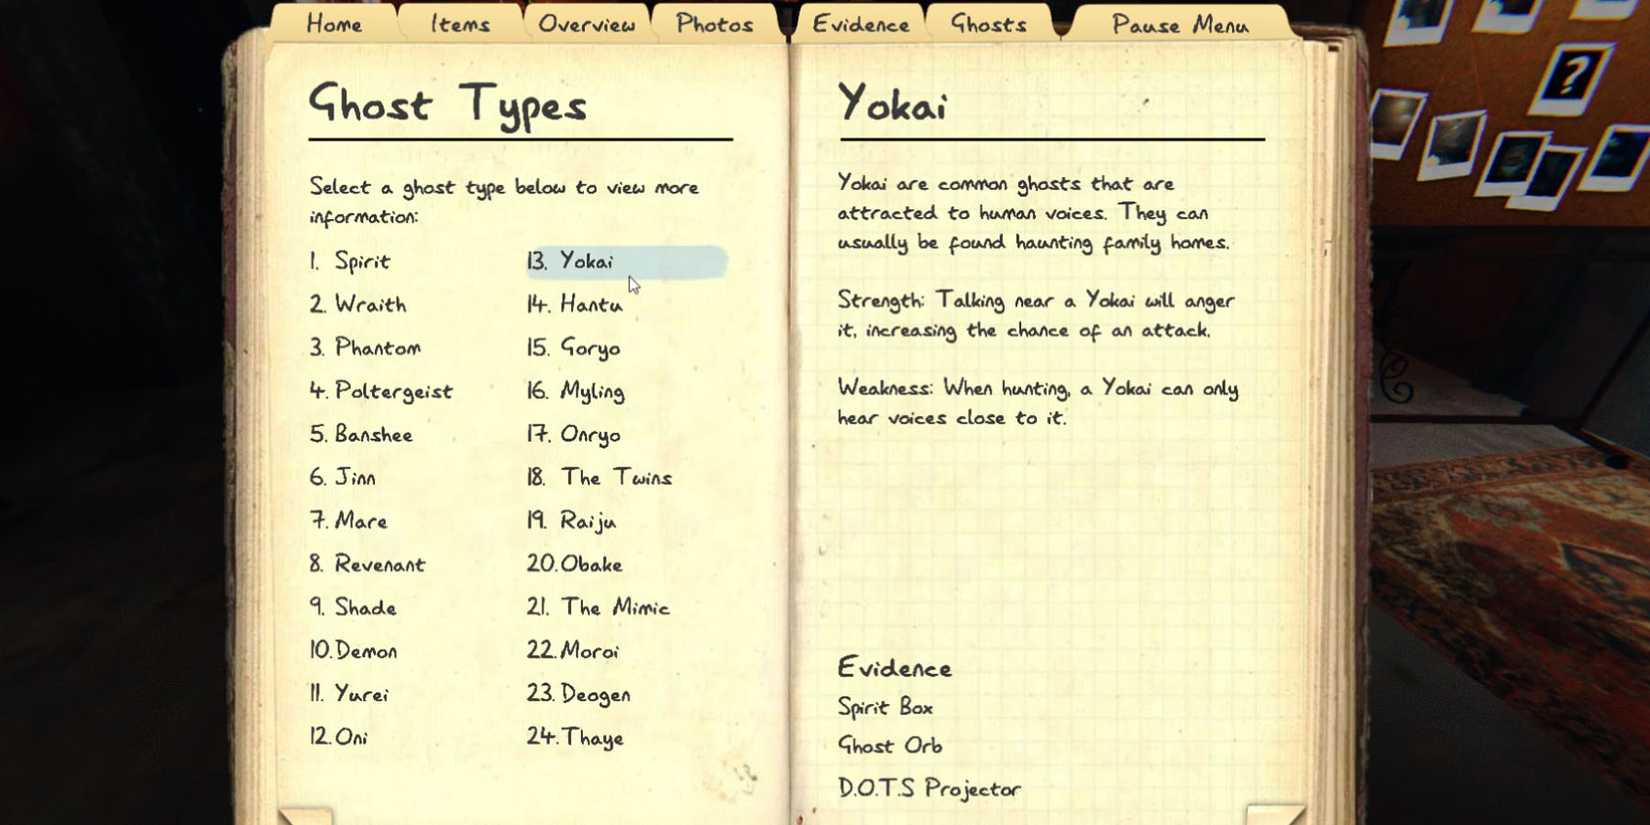 Home Items Overview Photos Evidence Ghosts Pause Menu
Ghost Types
Select a ghost type below to view more
information:
1. Spirit
2. Wraith
3. Phantom
4. Poltergeist
5. Banshee
6. Jinn
7. Mare
8. Revenant
9. Shade
10. Demon
11. Yurei
12. Oni
13. Yokai
14. Hantu
15. Goryo
16. Myling
17. Onryo
18. The Twins
19. Raiju
20. Obake
21. The Mimic
22. Moroi
23. Deogen
24. Thaye
Yokai
Yokai are common ghosts that are
attracted to human voices. They can
usually be found haunting family homes.
Strength: Talking near a Yokai will anger
it, increasing the chance of an attack.
Weakness: When hunting, a Yokai can only
hear voices close to it.
Evidence
Spirit Box
Ghost Orb
D.O.T.S Projector
?